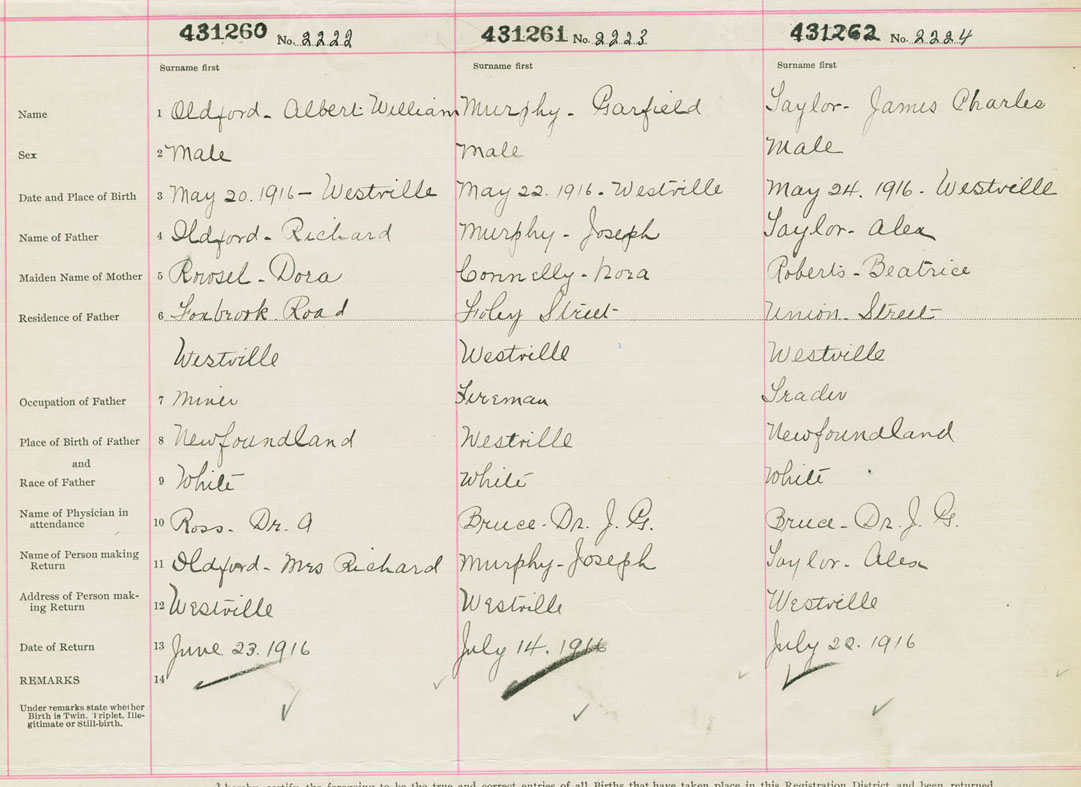 431260 No. 2222 431261 No. 2223 431262 No. 2224
Surname first Surname first Surname first
Name 1 Oldford - Albert William Murphy - Garfield Taylor - James Charles
Sex 2 Male Male Male
Date and Place of Birth 3 May 20. 1916 - Westville May 22. 1916 - Westville May 24. 1916 - Westville
Name of Father 4 Oldford - Richard Murphy - Joseph Taylor - Alex
Maiden Name of Mother 5 Rowsel - Dora Connelly - Nora Roberts - Beatrice
Residence of Father 6 Foxbrook Road Foley Street Union Street
Westville Westville Westville
Occupation of Father 7 Miner Fireman Trader
Place of Birth of Father 8 Newfoundland Westville Newfoundland
and
Race of Father 9 White White White
Name of Physician in
attendance 10 Ross - Dr. A Bruce - Dr. J. G. Bruce - Dr. J. G.
Name of Person making
Return 11 Oldford - Mrs Richard Murphy - Joseph Taylor - Alex
Address of Person mak-
ing Return 12 Westville Westville Westville
Date of Return 13 June 23. 1916 July 14. 1916 July 22. 1916
REMARKS 14
Under remarks state whether
Birth is Twin, Triplet, Ille-
gitimate or Still-birth.
I hereby certify the foregoing to be the true and correct entries of all Births that have taken place in this Registration District and been returned